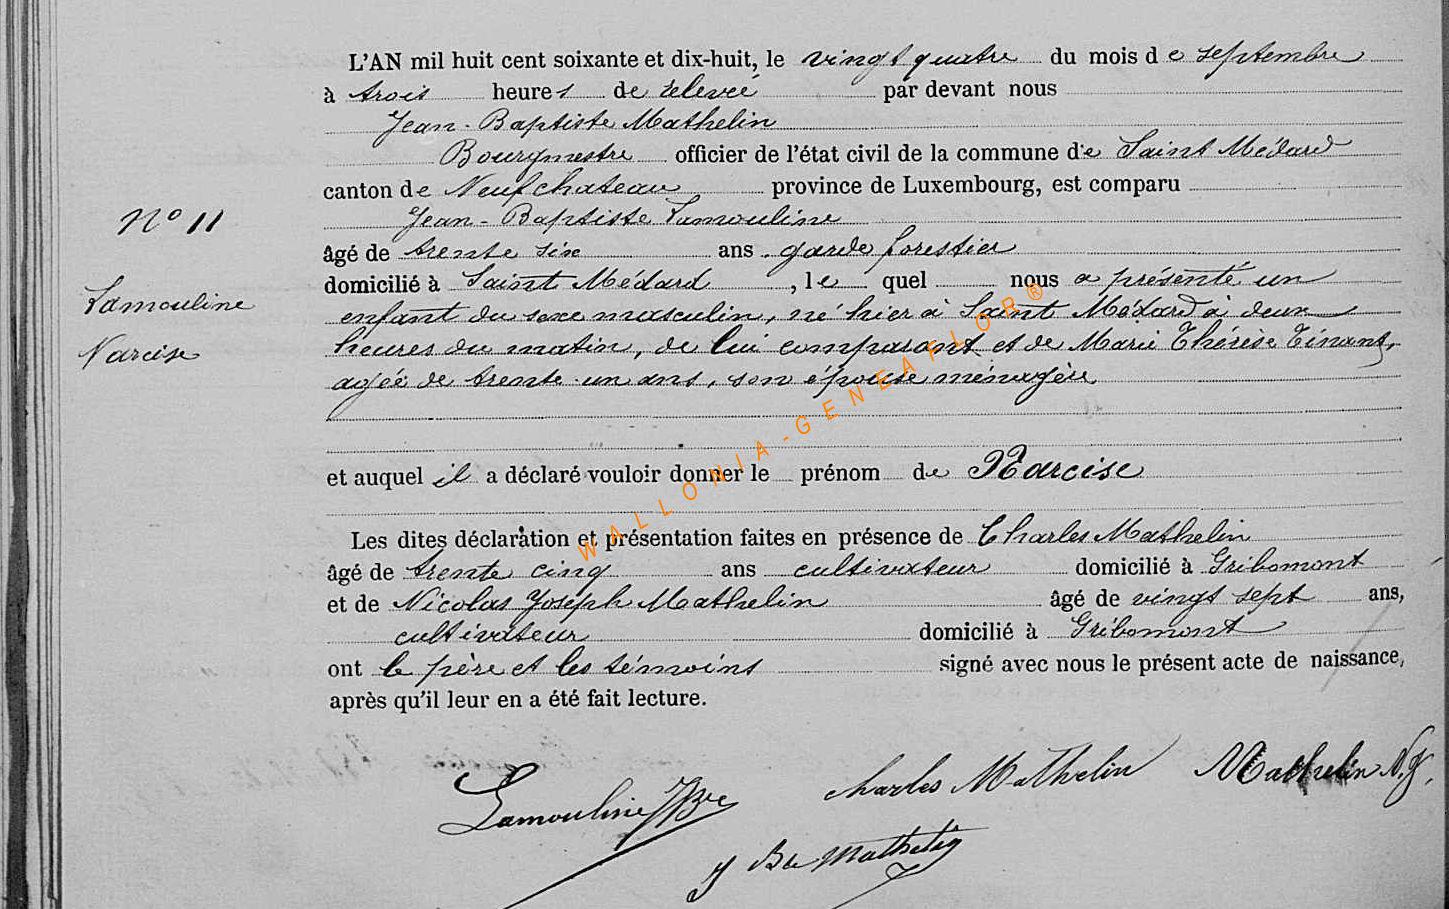 L'AN mil huit cent soixante et dix-huit, le vingt quatre du mois de septembre
à trois heures de relevée par devant nous
Jean-Baptiste Mathelin
Bourgmestre officier de l'état civil de la commune de Saint Médard
canton de Neufchateau province de Luxembourg, est comparu
Jean-Baptiste Lamouline
N° 11
âgé de trente six ans garde forestier
domicilié à Saint Médard, le quel nous a présenté un
Lamouline
enfant du sexe masculin, né hier à Saint Médard à deux
Narcise
heures du matin, de lui comparant et de Marie Thérèse Tinant,
agée de trente un ans, son épouse ménagère
et auquel il a déclaré vouloir donner le prénom de Narcise
Les dites déclaration et présentation faites en présence de Charles Mathelin
âgé de trente cinq ans cultivateur domicilié à Gribomont
et de Nicolas Joseph Mathelin âgé de vingt sept ans,
cultivateur domicilié à Gribomont
ont le père et les témoins signé avec nous le présent acte de naissance,
après qu'il leur en a été fait lecture.
Lamouline JBte charles Mathelin Mathelin N.J.
J Bte Mathelin
WALLONIA-GENEAFLOR®